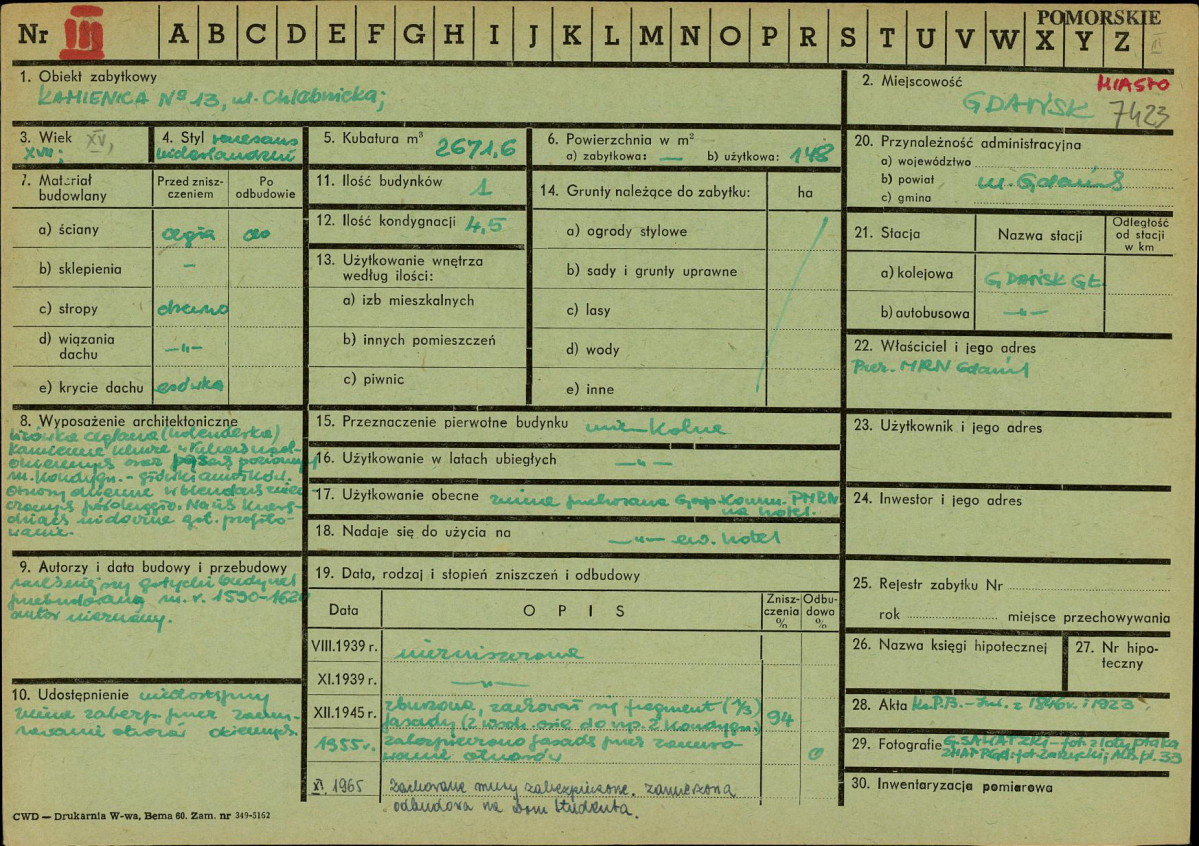 POMORSKIE
Nr III A B C D E F G H I J K L M N O P R S T U V W X Y Z
1. Obiekt zabytkowy
KAMIENICA Nº 13, ul. Chlebnicka;
2. Miejscowość MIASTO
GDAŃSK 7423
3. Wiek XV,
XVII;
4. Styl renesans
niderlandzki
5. Kubatura m³ 2671,6
6. Powierzchnia w m²
a) zabytkowa: — b) użytkowa: 148
7. Materiał budowlany
Przed zniszczeniem
Po odbudowie
a) ściany cegła
b) sklepienia –
c) stropy drewno
d) wiązania dachu —"—
e) krycie dachu esówka
8. Wyposażenie architektoniczne
licówka ceglana (holenderska)
kamienne
oraz
m. kondygn. – główki aniołków.
widoczne got. profilo-
wanie.
9. Autorzy i data budowy i przebudowy
wcześniejszy gotycki budynek
przebudowany m. r. 1590-1620
autor nieznany.
10. Udostępnienie niedostępny
ruina zabezp. przez zamu-
rowanie otworów okiennych
11. Ilość budynków 1
12. Ilość kondygnacji 4,5
13. Użytkowanie wnętrza
według ilości:
a) izb mieszkalnych
b) innych pomieszczeń
c) piwnic
14. Grunty należące do zabytku: ha
a) ogrody stylowe
b) sady i grunty uprawne
c) lasy
d) wody
e) inne
15. Przeznaczenie pierwotne budynku mieszkalne
16. Użytkowanie w latach ubiegłych —"—
17. Użytkowanie obecne ruina przekazana Gosp. Komun. PMRN
na hotel.
18. Nadaje się do użycia na —"— ew. hotel
19. Data, rodzaj i stopień zniszczeń i odbudowy
Data OPIS Zniszczenia % Odbudowa %
VIII.1939 r. niezniszczona
XI.1939 r. —"—
XII.1945 r. zburzona, zachował się fragment (⅓)
fasady (2 wsch. osie do wys. 2 kondygn.) 94
1955 r. zabezpieczono fasadę przez zamuro-
wanie otworów 0
XI 1965 zachowane mury zabezpieczone. zamierzona
odbudowa na dom studenta.
20. Przynależność administracyjna
a) województwo
b) powiat m. Gdańsk
c) gmina
21. Stacja
Nazwa stacji
Odległość od stacji w km
a) kolejowa GDAŃSK GŁ.
b) autobusowa —"—
22. Właściciel i jego adres
Prez. MRN Gdańsk
23. Użytkownik i jego adres
24. Inwestor i jego adres
25. Rejestr zabytku Nr
rok z miejsce przechowywania
26. Nazwa księgi hipotecznej
27. Nr hipoteczny
28. Akta Ks.P.B. – z 1846 r. i 1923.
29. Fotografie G. SAWATZKI – fot. z lotu ptaka
30. Inwentaryzacja pomiarowa
CWD — Drukarnia W-wa, Bema 60. Zam. nr 349-5162